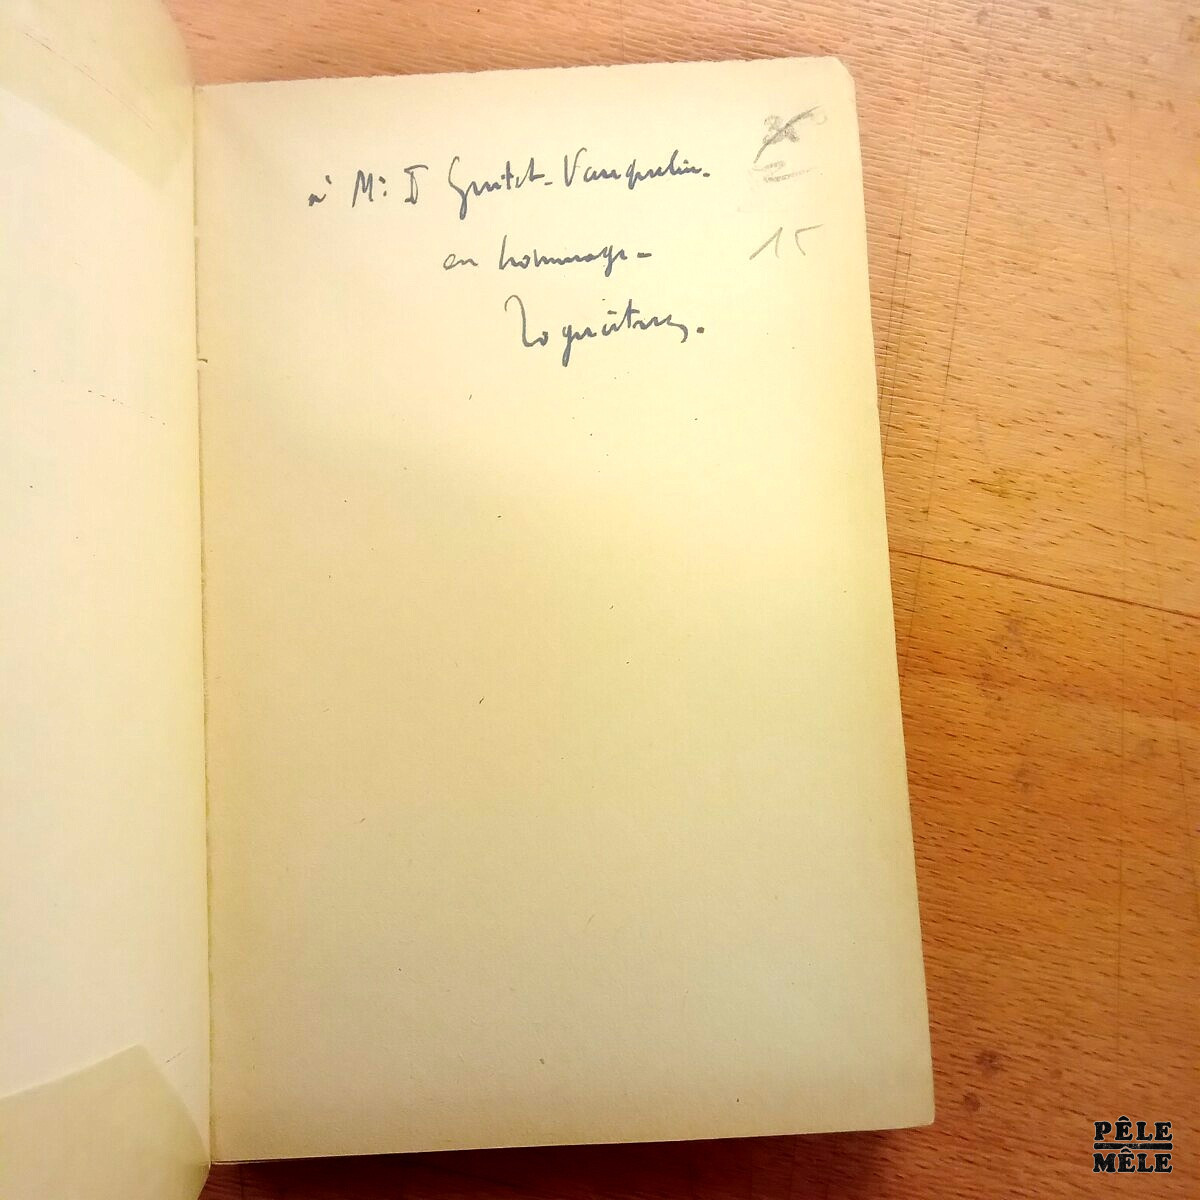 à Mr P Guitet-Vauquelin.
en hommage -
15
PÊLE
MÊLE